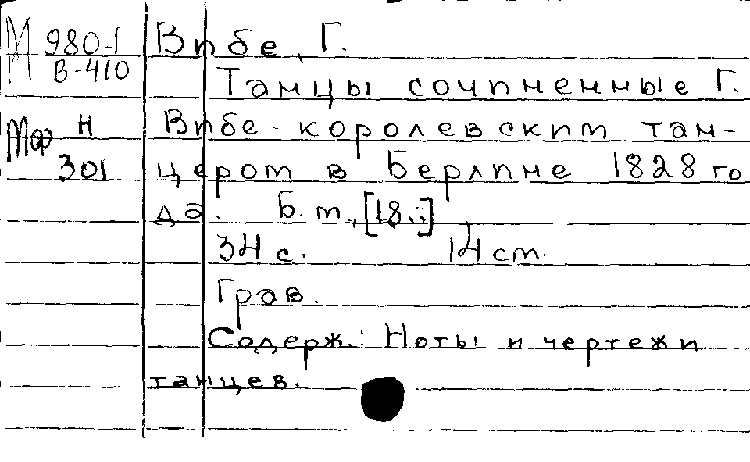 М 980-1 Вибе, Г.
В-410 Танцы сочиненные Г.
Мф Н Вибе-королевским тан-
301 цером в Берлине 1828 го
да. Б.м., [18..]
34 с. 14 см.
Грав.
Содерж.: Ноты и чертежи
танцев.